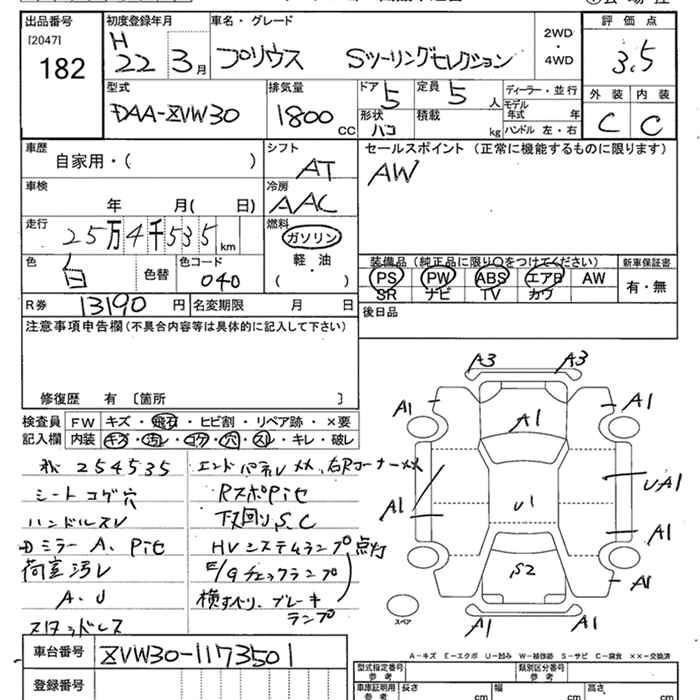 出品番号
[2047]
182
初度登録年月
H
22 3月
車名・グレード
プリウス Sツーリングセレクション
2WD
・
4WD
評価点
3.5
型式
DAA-ZVW30
排気量
1800
CC
ドア 5
定員 5
人
形状
ハコ
積載
kg
ディーラー・並行
モデル
年式 年
ハンドル 左・右
外装 内装
C C
車歴
自家用・( )
シフト
AT
セールスポイント (正常に機能するものに限ります)
AW
車検
年 月( 日)
冷房
AAC
走行
25万4千535 km
燃料
ガソリン
軽・油
( )
色
白
色替
色コード
040
装備品(純正品に限り○をつけてください)
新車保証書
PS PW ABS エアB AW
SR ナビ TV カワ
有・無
R券 13190 円
名変期限 月 日
後日品
注意事項申告欄(不具合内容等は具体的に記入して下さい)
修復歴 有 〔箇所 〕
検査員
記入欄
FW キズ・飛石・ヒビ割・リペア跡・×要
内装 キズ・汚レ・コゲ・穴・スレ・キレ・破レ
254535
シートコゲ穴
ハンドルスレ
ミラーA、Pitセ
荷室汚レ
A、U
スタッドレス
エンドパネル××、右Rコーナー××
RスポPitセ
下回りS、C
HVシステムランプ点灯
E/Gチェックランプ
横すべり、ブレーキ
ランプ
A3 A3
A1 A1 A1
A1 U1 UA1
A1
S2 A1
A1 A1
スペア
A-キズ E-エクボ U-凹み W-補修跡 S-サビ C-腐食 ××-交換済
車台番号 ZVW30-1173501
登録番号
型式指定番号
参考
類別区分番号
参考
車庫証明用
参考
長さ cm
幅 cm
高さ cm